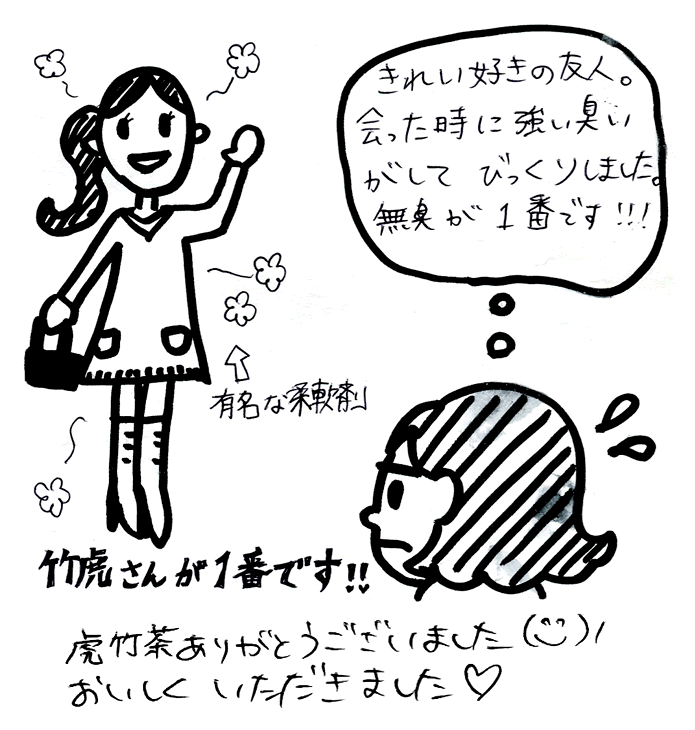 きれい好きの友人。
会った時に強い臭い
がして びっくりしました。
無臭が 1番です!!!
有名な柔軟剤
竹虎さんが1番です!!
虎竹茶ありがとうございました(^^)/
おいしく いただきました♡